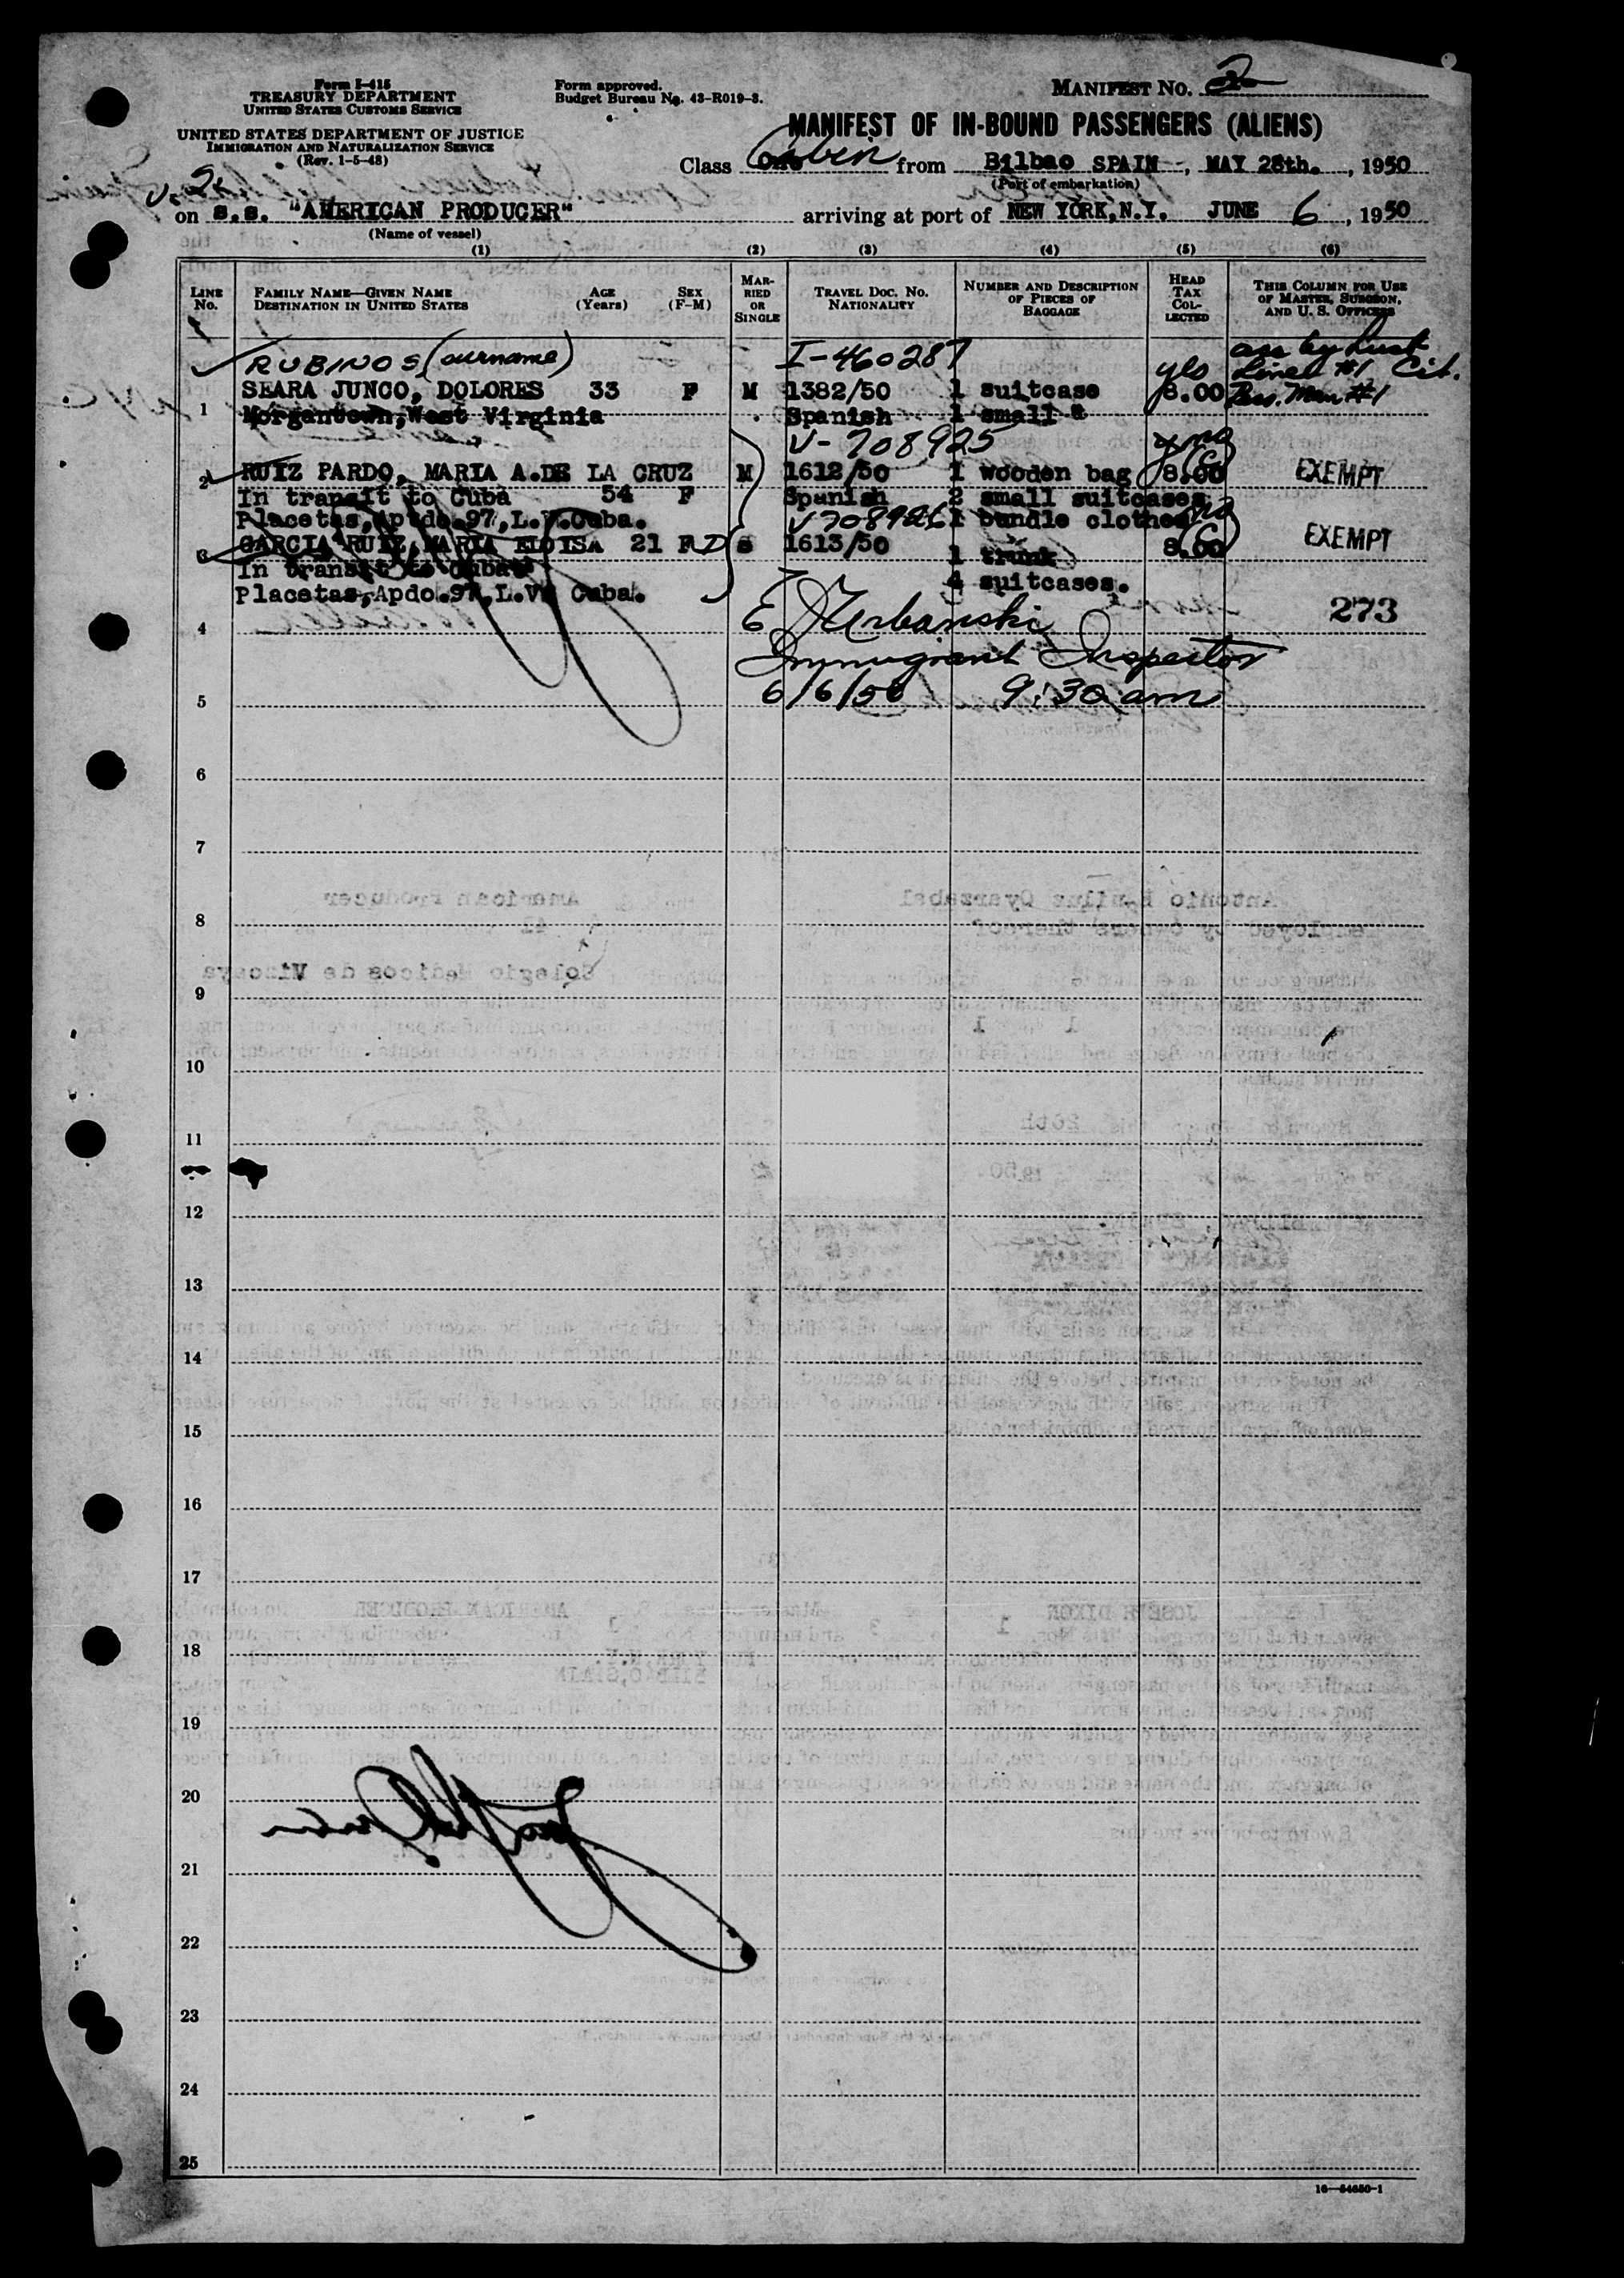 Form I-415
TREASURY DEPARTMENT
UNITED STATES CUSTOMS SERVICE
UNITED STATES DEPARTMENT OF JUSTICE
IMMIGRATION AND NATURALIZATION SERVICE
(Rev. 1-5-48)
Form approved.
Budget Bureau No. 43-R019-3.
MANIFEST No. 2
MANIFEST OF IN-BOUND PASSENGERS (ALIENS)
Class Cabin from Bilbao SPAIN, MAY 28th., 1950
(Port of embarkation)
on s.s. "AMERICAN PRODUCER" arriving at port of NEW YORK, N.Y. JUNE 6, 1950
(Name of vessel)
(1) (2) (3) (4) (5) (6)
LINE No.
FAMILY NAME—GIVEN NAME DESTINATION IN UNITED STATES
AGE (Years)
SEX (F-M)
MARRIED OR SINGLE
TRAVEL DOC. NO. NATIONALITY
NUMBER AND DESCRIPTION OF PIECES OF BAGGAGE
HEAD TAX COLLECTED
THIS COLUMN FOR USE OF MASTER, SURGEON, AND U. S. OFFICERS
RUBINOS (surname) I-460287 yes
SEARA JUNCO, DOLORES 33 F M 1382/50 1 suitcase 8.00
1 Morgantown, West Virginia Spanish 1 small "
V-708925 no
2 RUIZ PARDO, MARIA A.DE LA CRUZ M 1612/50 1 wooden bag 8.00 EXEMPT
In transit to Cuba 54 F Spanish 2 small suitcases
Placetas, Aptdo.97, L.V.Cuba. V708926 1 bundle clothes no
3 GARCIA RUIZ, MARIA ELOISA 21 F S 1613/50 1 trunk 8.00 EXEMPT
In transit to Cuba
Placetas, Apdo.97, L.V. Cuba. 4 suitcases.
273
4
E J Urbanski
Immigrant Inspector
5 6/6/50 9:30 am
6
7
8
9
10
11
12
13
14
15
16
17
18
19
20
21
22
23
24
25
16—54650-1